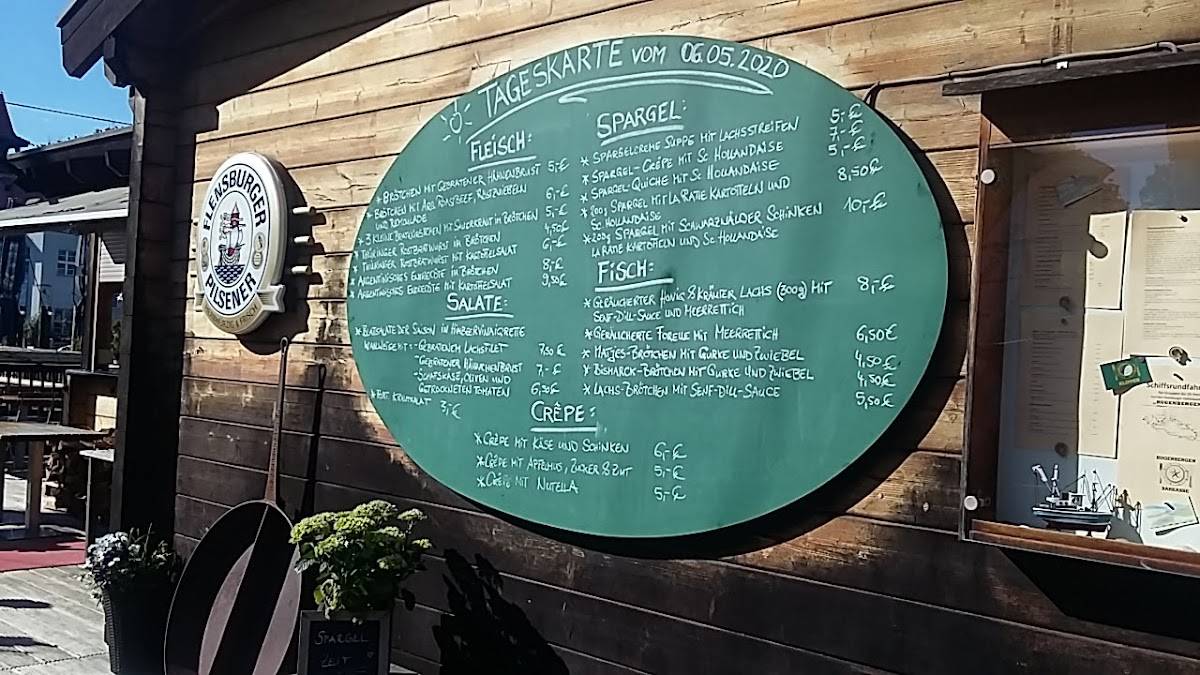 TAGESKARTE VOM 06.05.2020
FLEISCH:
* BRÖTCHEN MIT GEBRATENER HÄHNCHENBRUST 5,-€
* BRÖTCHEN MIT ARG. ROASTBEEF, RÖSTZWIEBELN 6,-€
UND REMOULADE
* 3 KLEINE BRATWÜRSTCHEN MIT SAUERKRAUT IM BRÖTCHEN 5,-€
* THÜRINGER ROSTBRATWURST IM BRÖTCHEN 4,50€
* THÜRINGER ROSTBRATWURST MIT KARTOFFELSALAT 6,-€
* ARGENTINISCHES ENTRECÔTE IM BRÖTCHEN 8,-€
* ARGENTINISCHES ENTRECÔTE MIT KARTOFFELSALAT 9,50€
SALATE:
* BLATTSALATE DER SAISON IN HIMBEERVINAIGRETTE
WAHLWEISE MIT: - GEBRATENEM LACHSFILET 7,50€
- GEBRATENER HÄHNCHENBRUST 7,-€
- SCHAFSKÄSE, OLIVEN UND
GETROCKNETEN TOMATEN 6,50€
KRAUTSALAT 3,-€
SPARGEL:
* SPARGELCREME SUPPE MIT LACHSSTREIFEN 5,-€
* SPARGEL-CRÊPE MIT SC HOLLANDAISE 7,-€
* SPARGEL-QUICHE MIT SC HOLLANDAISE 5,-€
* 200g SPARGEL MIT LA RATTE KARTOFFELN UND 8,50€
SC HOLLANDAISE
* 200g SPARGEL MIT SCHWARZWÄLDER SCHINKEN 10,-€
LA RATTE KARTOFFELN UND SC HOLLANDAISE
FISCH:
* GERÄUCHERTER HONIG & KRÄUTER LACHS (300g) MIT 8,-€
SENF-DILL-SAUCE UND MEERRETTICH
* GERÄUCHERTE FORELLE MIT MEERRETTICH 6,50€
* MATJES-BRÖTCHEN MIT GURKE UND ZWIEBEL 4,50€
* BISMARCK-BRÖTCHEN MIT GURKE UND ZWIEBEL 4,50€
* LACHS-BRÖTCHEN MIT SENF-DILL-SAUCE 5,50€
CRÊPE:
* CRÊPE MIT KÄSE UND SCHINKEN 6,-€
* CRÊPE MIT APFELMUS, ZUCKER & ZIMT 5,-€
* CRÊPE MIT NUTELLA 5,-€
FLENSBURGER
PILSENER
SPARGEL
ZEIT
Schiffsrundfahrt
RUGENBERGEN
RUGENBERGEN
BARKASSE